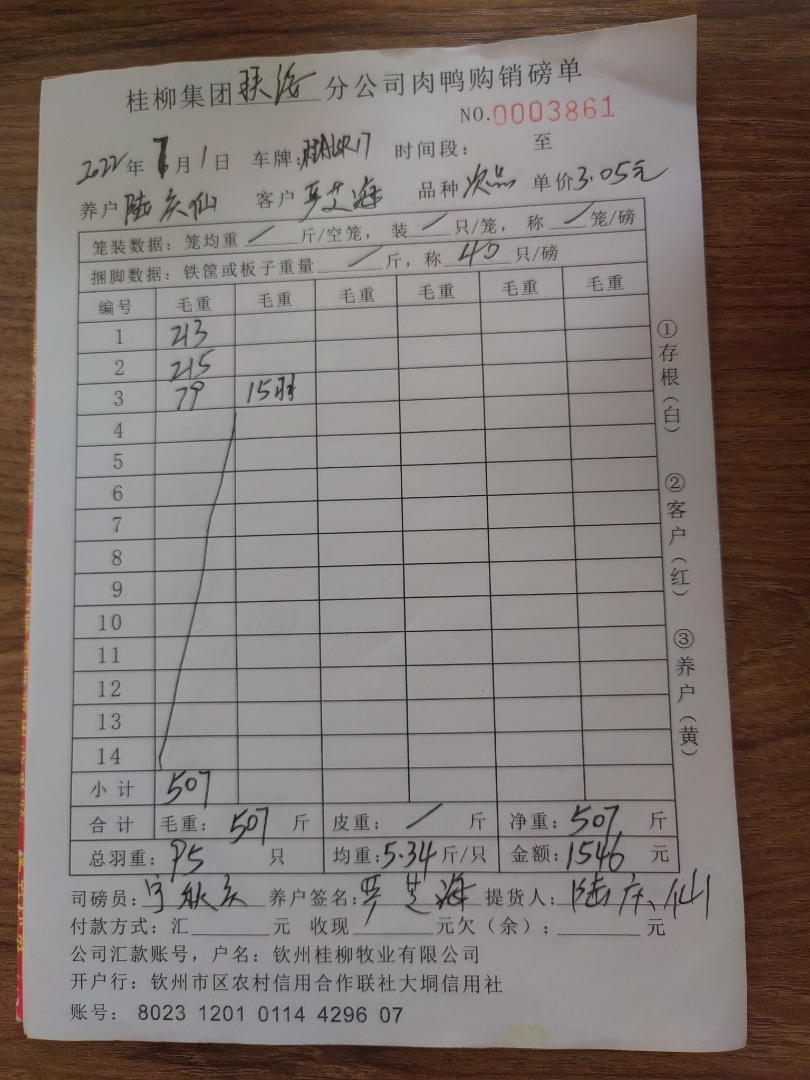 桂柳集团 分公司肉鸭购销磅单
NO.0003861
2022年7月1日 车牌： 时间段： 至
养户 陆庆仙 客户 覃艾海 品种 次品 单价3.05元
笼装数据：笼均重 / 斤/空笼，装 / 只/笼，称 / 笼/磅
捆脚数据：铁筐或板子重量 / 斤，称 40 只/磅
编号 毛重 毛重 毛重 毛重 毛重 毛重
1 213
2 215
3 79 15只
4
5
6
7
8
9
10
11
12
13
14
小计 507
合计 毛重：507 斤 皮重：/ 斤 净重：507 斤
总羽重：95 只 均重：5.34斤/只 金额：1546 元
司磅员： 养户签名：覃艾海 提货人：陆庆仙
付款方式：汇 元 收现 元欠（余）： 元
公司汇款账号，户名：钦州桂柳牧业有限公司
开户行：钦州市区农村信用合作联社大垌信用社
账号： 8023 1201 0114 4296 07
①存根（白）
②客户（红）
③养户（黄）